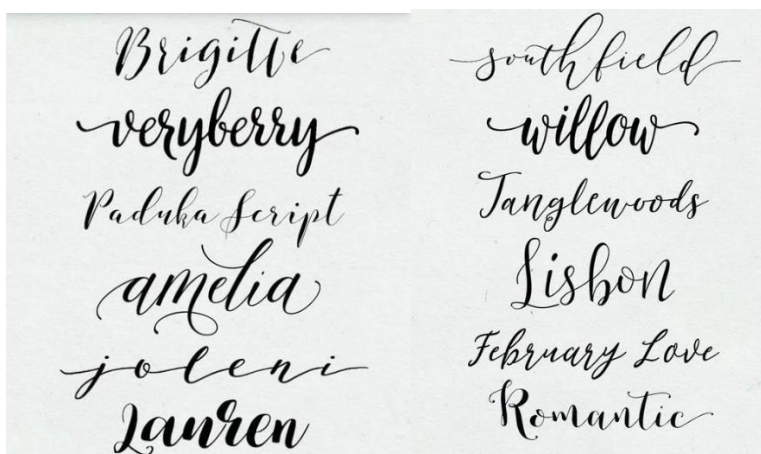 Brigitte
veryberry
Paduka Script
amelia
joleni
Lauren
southfield
willow
Tanglewoods
Lisbon
February Love
Romantic